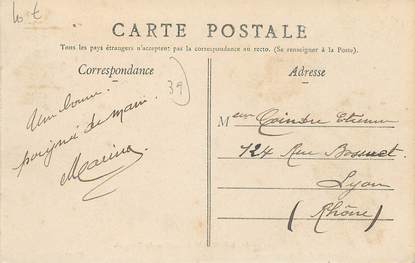 10 €
CARTE POSTALE
Tous les pays étrangers n'acceptent pas la correspondance au recto. (Se renseigner à la Poste).
Correspondance
Adresse
39
Une bonne
poignée de main.
Marina
Mesr Coindre Etienne
124 Rue Bossuet
Lyon
(Rhône)